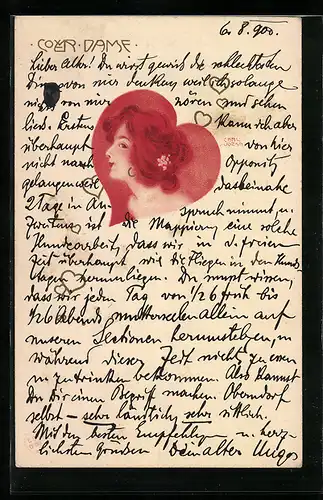 6. 8. 900.
COEUR-DAME
Lieber Alter! Du wirst gewiß die schlechtesten
Dinge von mir denken, weil ich so lange
nichts von mir hören und sehen
ließ. Erstens kann ich aber
überhaupt von hier
nicht nach Opponitz
gelangen weil das beinahe
2 Tage in An-
spruch nimmt, u.
Zweitens ist die Mappierung eine solche
Hundearbeit, dass wir in d. freien
Zeit überhaupt wie die Fliegen in den Hunds-
tagen herumliegen. Du musst wissen,
dass wir jeden Tag von 1/26 früh bis
1/26 Abends mutterseelen allein auf
unseren Sectionen herumsteigen, u.
während dieser Zeit nichts zu essen
u. zu trinken bekommen. Also kannst
Du Dir einen Begriff machen. Oberndorf
selbst – sehr ländlich, sehr sittlich.
Mit den besten Empfehlungen u. herz-
lichsten Grüßen Dein alter Hugo